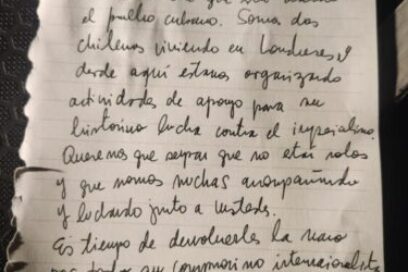 el pueblo cubano. Somos dos
chilenas viviendo en Londres y
desde aquí estamos organizando
actividades de apoyo para su
historica lucha contra el imperialismo.
Queremos que sepan que no están solos
y que somos muchas acompañando
y luchando junto a ustedes.
Es tiempo de devolverles la mano
por todo su compromiso internacionalista